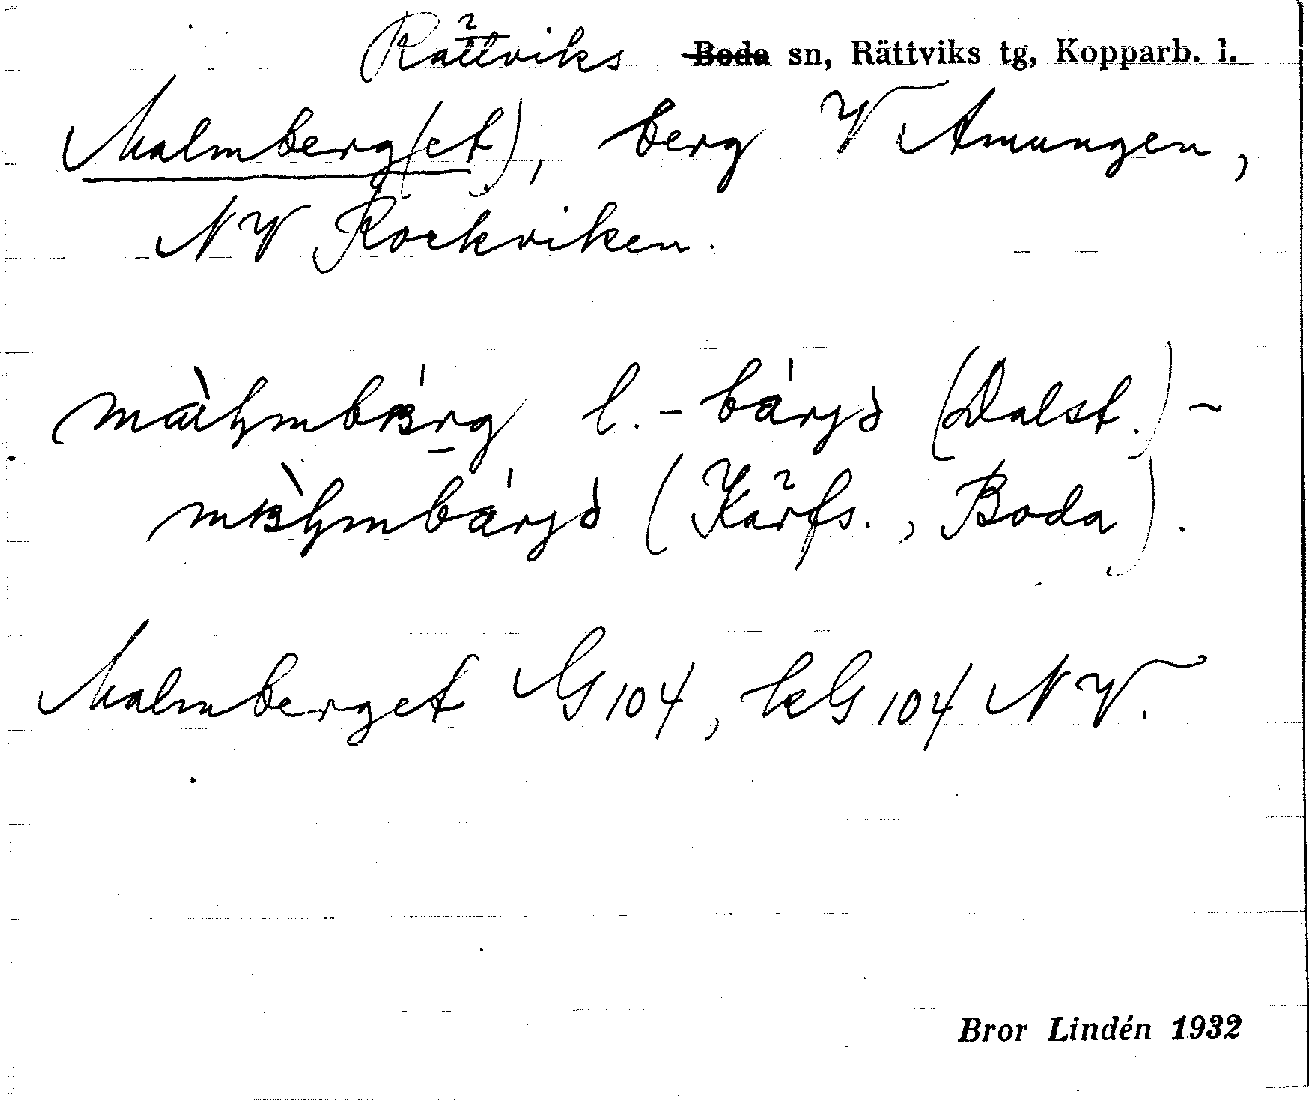 Rättviks ~~Boda~~ sn, Rättviks tg, Kopparb. l.
Malmberg(et), berg V Amungen,
NV Rockviken.
màlmbärg l. -bárjə̀ (Dalst.) ~
màlmbárjə̀ (Kärfs., Boda).
Malmberget G 104, kG 104 NV.
Bror Lindén 1932